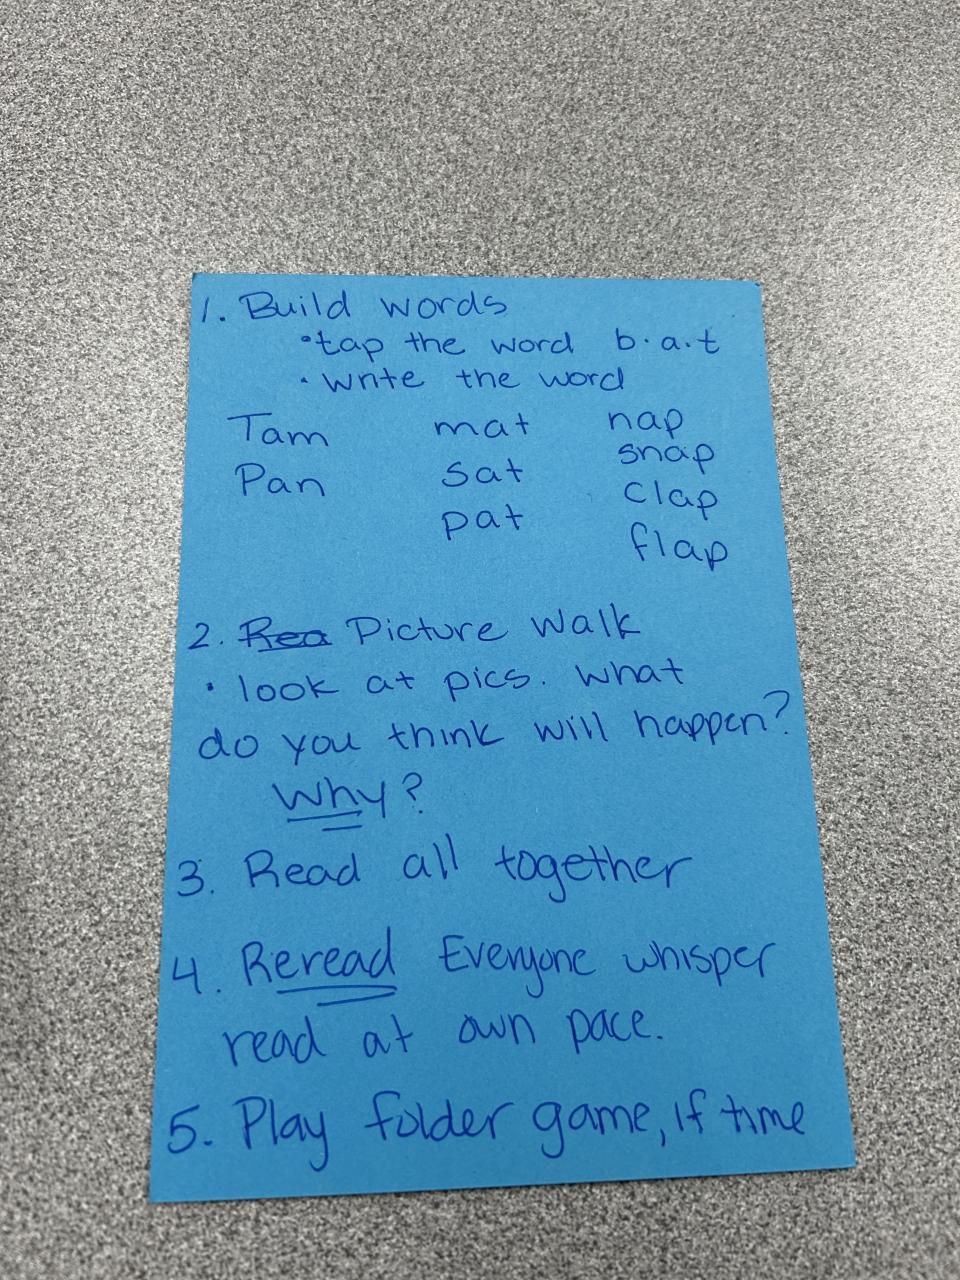 1. Build words
• tap the word b.a.t
• write the word
Tam mat nap
Pan sat snap
pat clap
flap
2. Rea Picture Walk
• look at pics. What
do you think will happen?
Why?
3. Read all together
4. Reread Everyone whisper
read at own pace.
5. Play folder game, if time